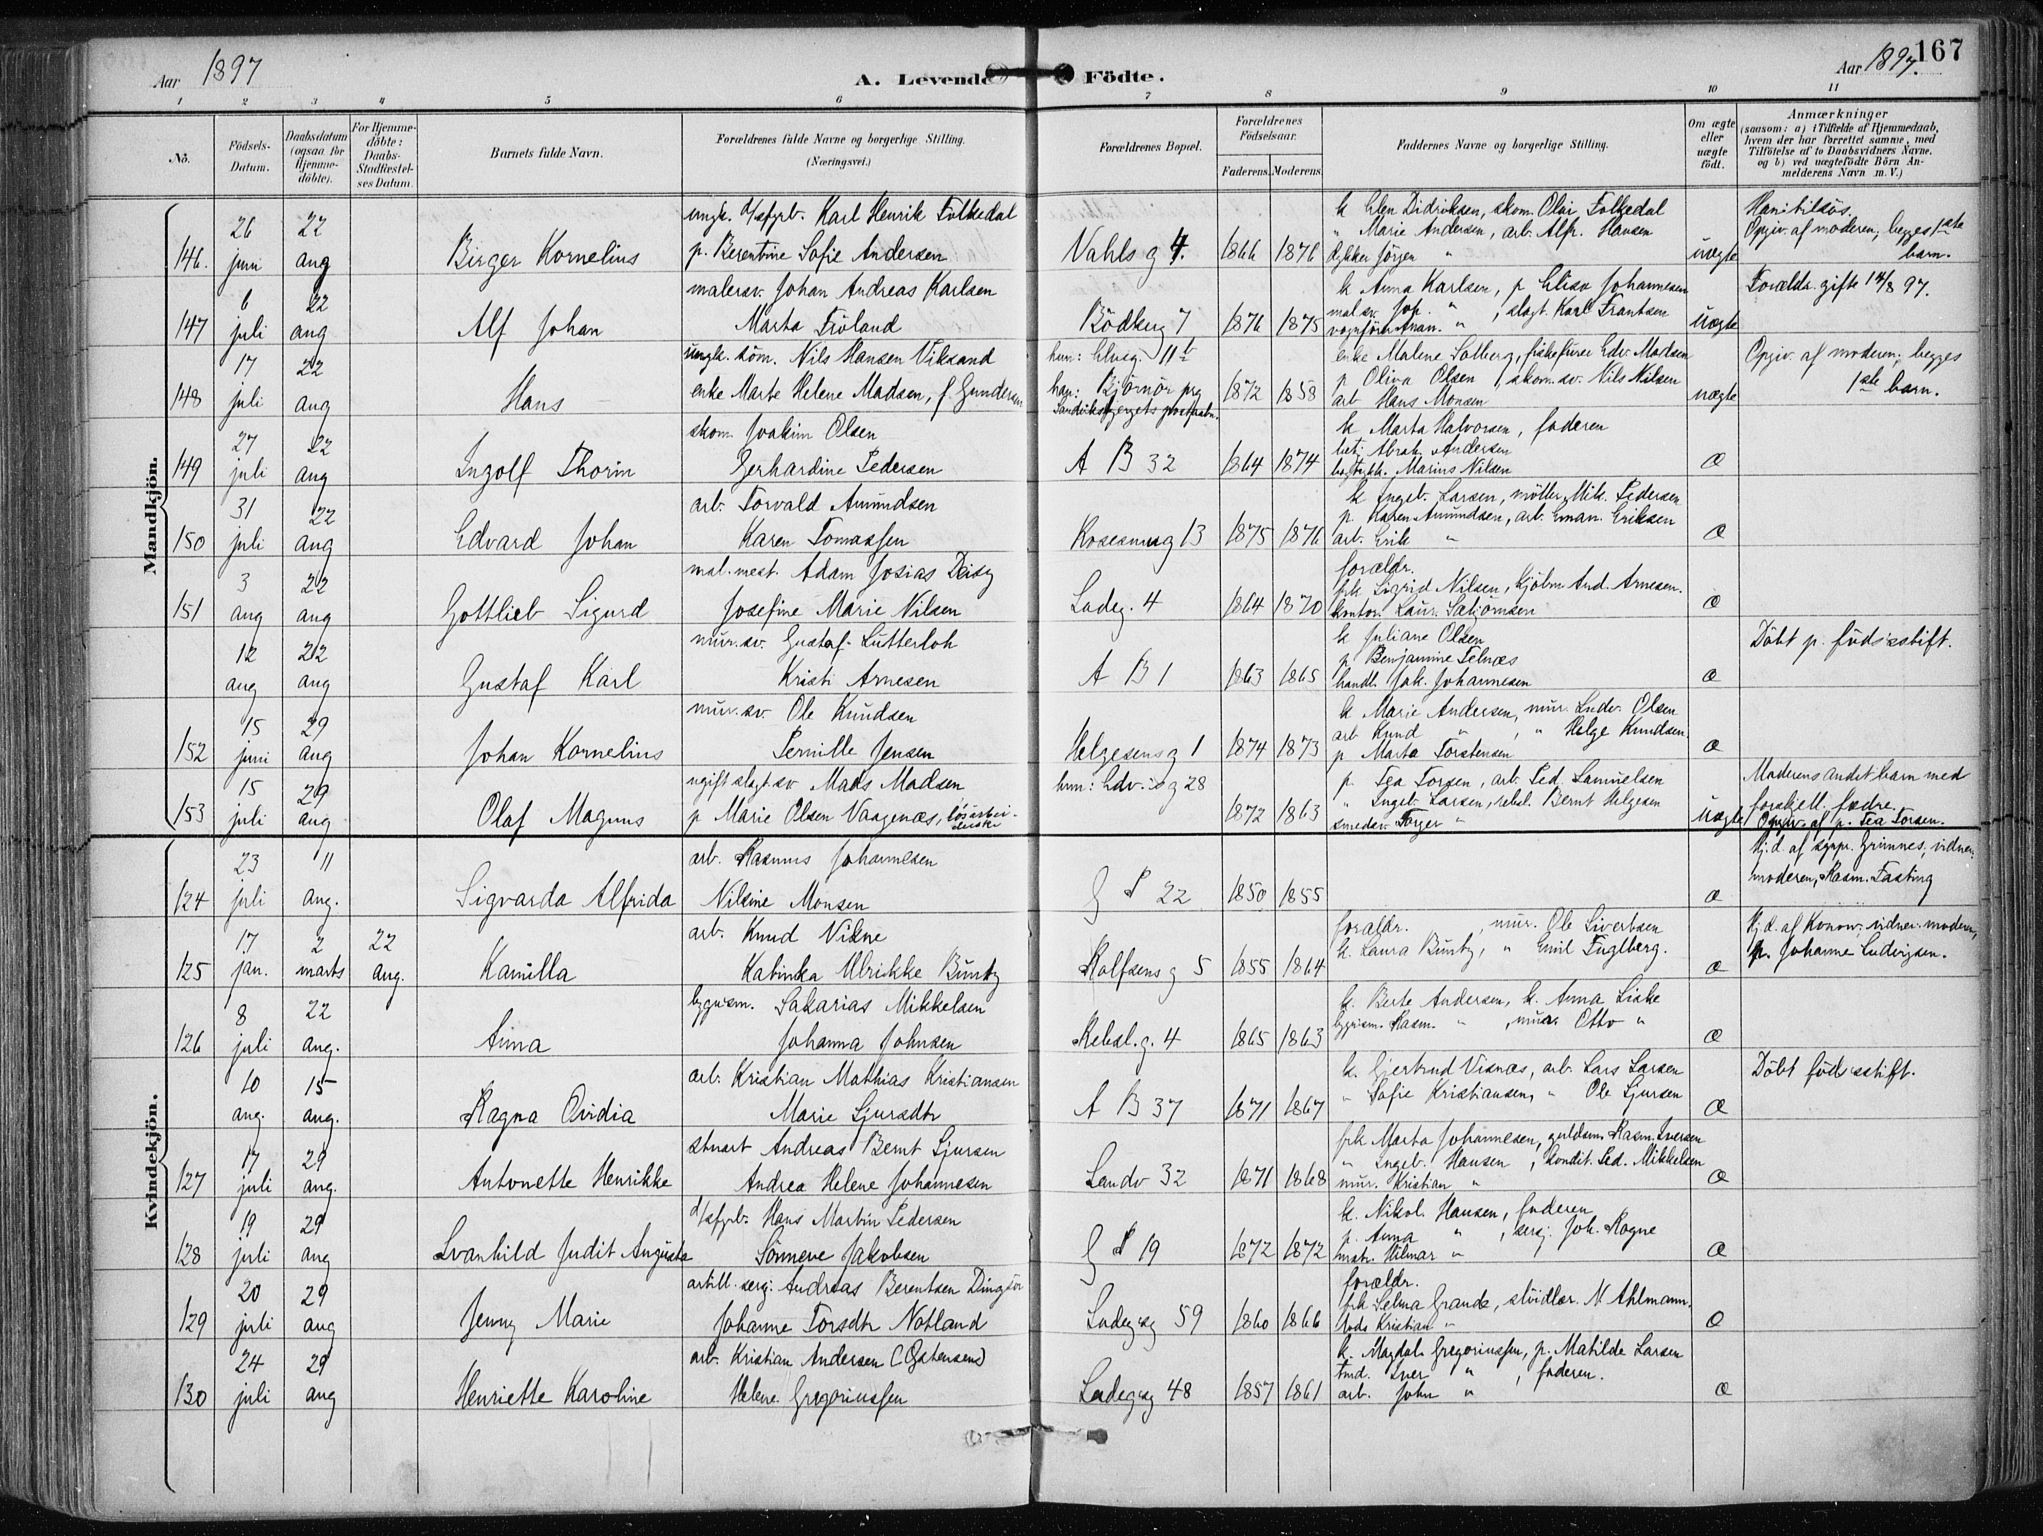 Aar 1897
A. Levende Födte.
Aar 1897.
167
1 2 3 4 5 6 7 8 9 10 11
Nö.
Födsels-Datum.
Daabsdatum (ogsaa for Hjemmedöbte).
For Hjemmedöbte: Daabs-Stadfæstelses Datum.
Barnets fulde Navn.
Forældrenes fulde Navne og borgerlige Stilling. (Næringsvei.)
Forældrenes Bopæl.
Forældrenes Födselsaar.
Faderens. Moderens.
Faddernes Navne og borgerlige Stilling.
Om ægte eller uægte født.
Anmærkninger
(saasom: a) i Tilfælde af Hjemmedaab, hvem der har forrettet samme, med Tilföielse af to Daabsvidners Navne, og b) ved uægtefødte Börn Anmelderens Navn m. V.)
Mandkjön.
146. 26 juni 22 aug Birger Kornelius
ungk. Karl Henrik Folkedal
p. Berentine Sofie Andersen
Vahls g 4. 1866 1876
Marie Andersen, arb. Alfr. Hansen
uægte
Opgiv. af moderen, begges 1ste barn.
147 6 juli 22 aug Alf Johan
malersv. Johan Andreas Karlsen
Marta Fröland
Bödkerg 7 1876 1875
k Anna Karlsen, p Elise Johannesen
slagt. Karl Frantsen
uægte
Forældr. gifte 14/8 97.
148 17 juli 22 aug Hans
ungk. töm. Nils Hansen Viksand
enke Marte Helene Madsen, f. Gundersen
1872 1858
enke Malene Solberg, fiskefører Edv. Madsen
p Oliva Olsen, skom.sv. Nils Nilsen
arb Hans Monsen
uægte
Opgiv af moderen; begges 1ste barn.
149 27 juli 22 aug Ingolf Thorin
skom. Joakim Olsen
Gerhardine Pedersen
A B 32 1864 1874
k Marta Halvorsen, faderen
betj. Abrah. Andersen
Marius Nilsen
Æ
150 31 juli 22 aug Edvard Johan
arb. Torvald Amundsen
Karen Tomassen
Rosesmug 13 1875 1876
k Ingeb. Larsen, möller Mik. Pedersen
p. Karen Amundsen, arb. Eman. Eriksen
arb. Erik "
Æ
151 3 aug 22 aug Gottlieb Sigurd
mal. mest. Adam Josias
Josefine Marie Nilsen
Ladeg. 4 1864 1870
forældr.
frk Sigrid Nilsen, kjöbm And. Arnesen.
Æ
12 aug 22 aug Gustaf Karl
mur.sv. Gustaf Lutterloh
Kristi Arnesen
A B 1 1863 1865
k Juliane Olsen
p Benjamine Telnæs
handl. Jak. Johannesen
Æ
Döbt p. föds.stift.
152 15 juni 29 aug Johan Kornelius
mur.sv. Ole Knudsen
Pernille Jensen
Helgesensg 1 1874 1873
k Marie Andersen, mur. Ludv. Olsen
arb Knud " , " Helge Knudsen.
p Marta Torstensen
Æ
153 15 juli 29 aug Olaf Magnus
ugift slagt.sv Mads Madsen
p Marie Olsen Vaagenæs, lösarbeiderske
1872 1863
p. Tea Torsen, arb. Ped. Samuelsen
" Ingeb. Larsen, rebsl. Bernt Helgesen
smedsv. Torger "
uægte
Moderens andet barn med forskjell. fædre.
Opgiv. af p. Tea Torsen.
Kvindekjön.
124 23 juli 11 aug. Sigvarda Alfrida
arb. Rasmus Johannesen
Nilsine Monsen
G P 22 1850 1855
Æ
Hj. d. af Grimnes, vidner: moderen, Rasm. Fasting
125 17 jan. 2 marts 22 aug. Kamilla
arb. Knud Vikne
Katinka Ulrikke Buntz
Rolfsensg 5 1855 1864
forældr. , mur. Ole Sivertsen
k. Laura Buntz, " Emil Fuglberg.
Æ
Hj. d. af Konow, vidner: moderen, p. Johanne Ludvigsen.
126 8 juli 22 aug. Anna
bygn.sm. Sakarias Mikkelsen
Johanna Johnsen
Rebsl. g. 4 1865 1863
k. Berte Andersen, k. Anna Liske
bygn.sm. Rasm. " , mur. Otto "
Æ
10 aug. 15 aug. Ragna Ovidia
arb. Kristian Mathias Kristiansen
Marie Sjursdtr
A B 37 1871 1867
k. Gjertrud Visnæs, arb. Lars Larsen
" Sofie Kristiansen, " Ole Sjursen
Æ
Döbt föds.stift.
127 17 juli 29 aug. Antonette Henrikke
stuart Andreas Bernt Sjursen
Andrea Helene Johannesen
Sandv 32 1871 1868
frk Marta Johannesen, guldsm. Rasm. Iversen
" Ingeb. Hansen, kondit. Ped. Mikkelsen
mur. Kristian "
Æ
128 19 juli 29 aug Svanhild Judit Augusta
Hans Martin Pedersen
Sönneve Jakobsen
G P 19 1872 1872
k. Nikol. Hansen, faderen
p. Anna " , serj. Joh. Rogne
matr. Hilmar "
Æ
129 20 juli 29 aug Jenny Marie
artill. serg. Andreas Berentsen Dingsör
Johanne Torsdtr Notland
Ladegsg 59 1860 1866
forældr.
frk Selma Grande, N. Ahlmann.
Kristian "
Æ
130 24 juli 29 aug Henriette Karoline
arb. Kristian Andersen (Østensen)
Helene Gregoriussen
Ladegsg 48 1857 1861
k. Magdal. Gregoriussen, p. Matilde Larsen
Iver " , faderen.
arb. John "
Æ